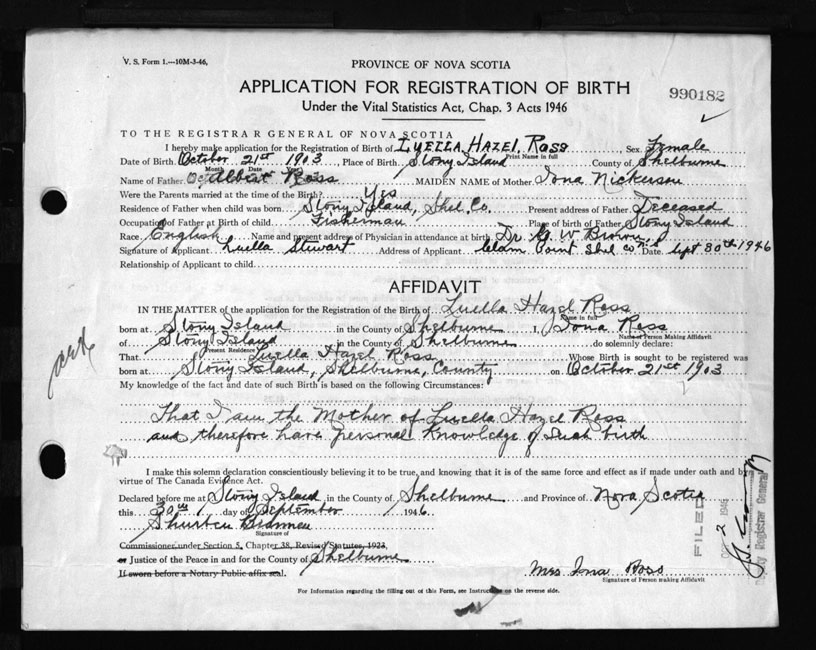 V. S. Form 1.—10M-3-46,
PROVINCE OF NOVA SCOTIA
APPLICATION FOR REGISTRATION OF BIRTH
990182
Under the Vital Statistics Act, Chap. 3 Acts 1946
TO THE REGISTRAR GENERAL OF NOVA SCOTIA
I hereby make application for the Registration of Birth of LUELLA HAZEL ROSS Sex Female
Print Name in full
Date of Birth October 21st 1903 Place of Birth Stony Island County of Shelburne
Month Date
Name of Father Albert Ross MAIDEN NAME of Mother Iona Nickerson
Were the Parents married at the time of the Birth? Yes
Residence of Father when child was born Stony Island, Shel. Co. Present address of Father Deceased
Occupation of Father at Birth of child Fisherman Place of birth of Father Stony Island
Race English Name and present address of Physician in attendance at birth Dr. W Brown
Signature of Applicant Luella Stewart Address of Applicant Clam Point Shel Co N.S. Date Sept 30th 1946
Relationship of Applicant to child
AFFIDAVIT
IN THE MATTER of the application for the Registration of Birth of Luella Hazel Ross
Name in full
born at Stony Island in the County of Shelburne I, Iona Ross
Name of Person Making Affidavit
of Stony Island in the County of Shelburne do solemnly declare:
Present Residence
That Luella Hazel Ross Whose Birth is sought to be registered was
born at Stony Island, Shelburne, County on October 21st 1903
My knowledge of the fact and date of such Birth is based on the following Circumstances:
That I am the Mother of Luella Hazel Ross
and therefore have personal knowledge of such birth
I make this solemn declaration conscientiously believing it to be true, and knowing that it is of the same force and effect as if made under oath and by
virtue of The Canada Evidence Act.
Declared before me at Stony Island in the County of Shelburne and Province of Nova Scotia
this 30th day of September 1946
Signature of
Commissioner under Section 5, Chapter 38, Revised Statutes, 1923,
or Justice of the Peace in and for the County of Shelburne
If sworn before a Notary Public affix seal.
Mrs Ina Ross
Signature of Person making Affidavit
For Information regarding the filling out of this Form, see Instructions on the reverse side.
FILED
2 1946
Deputy Registrar General